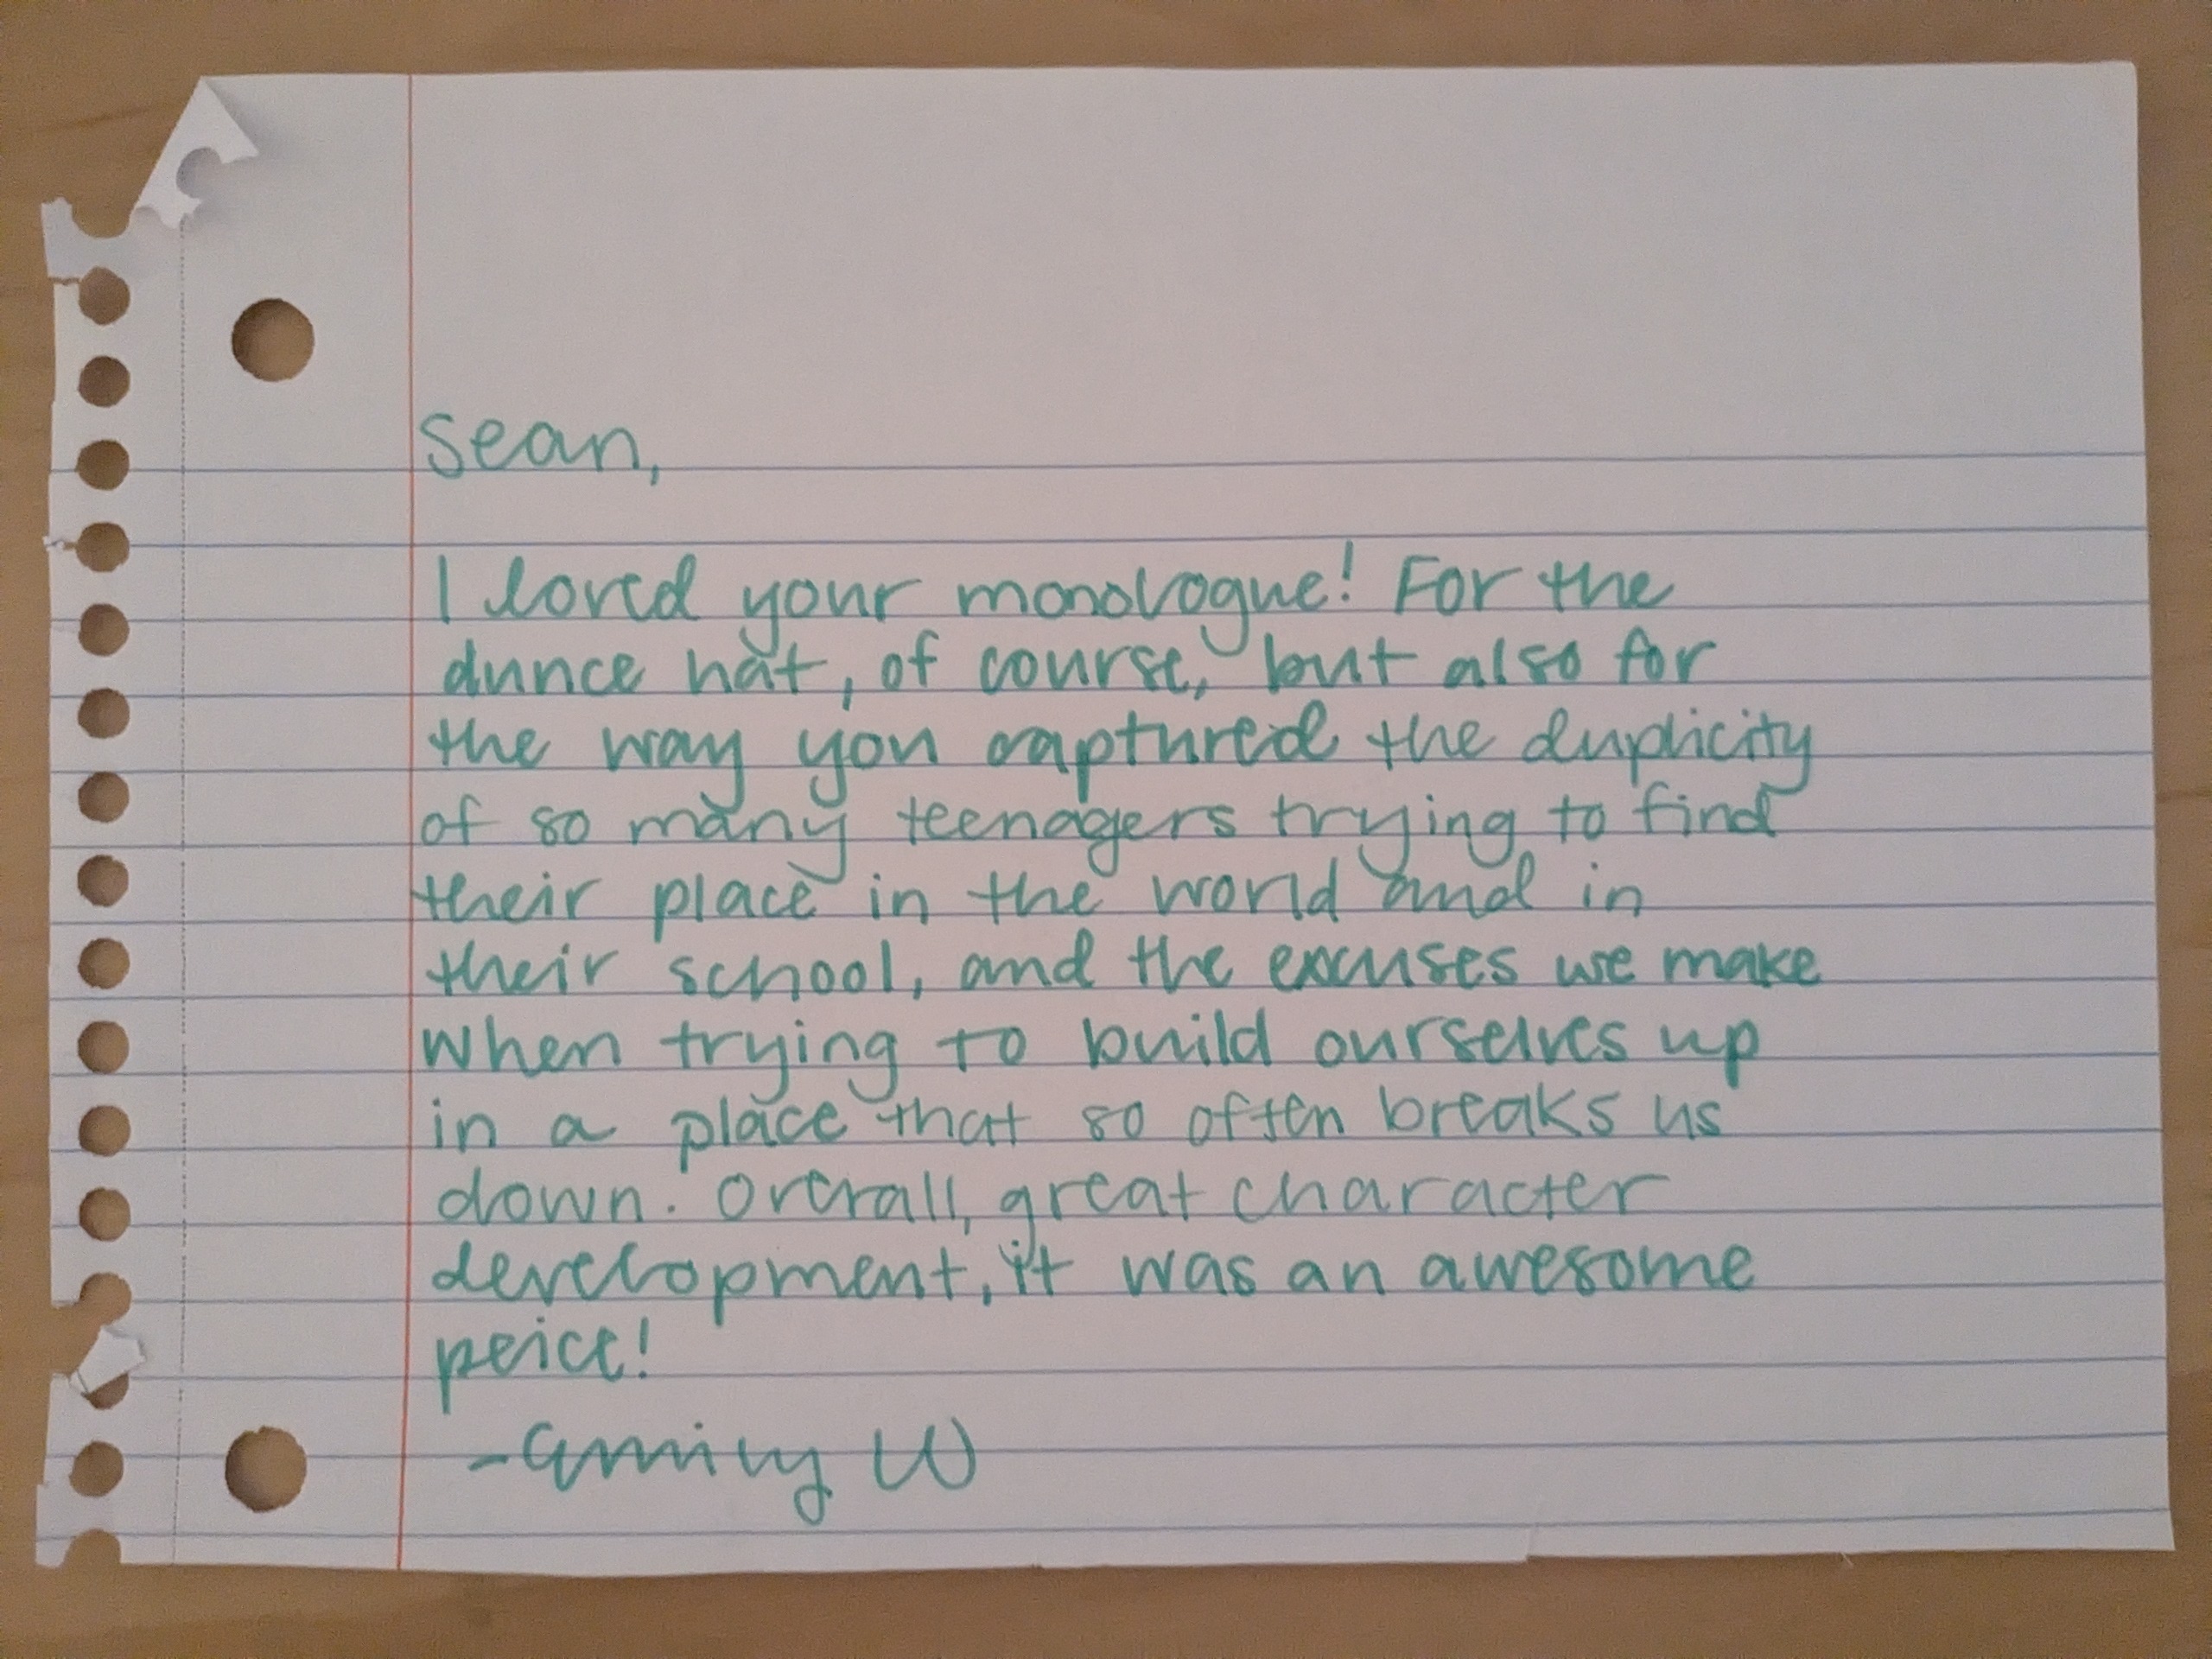 Sean,
I loved your monologue! For the
dunce hat, of course, but also for
the way you captured the duplicity
of so many teenagers trying to find
their place in the world and in
their school, and the excuses we make
when trying to build ourselves up
in a place that so often breaks us
down. Overall, great character
development, it was an awesome
peice!
- W